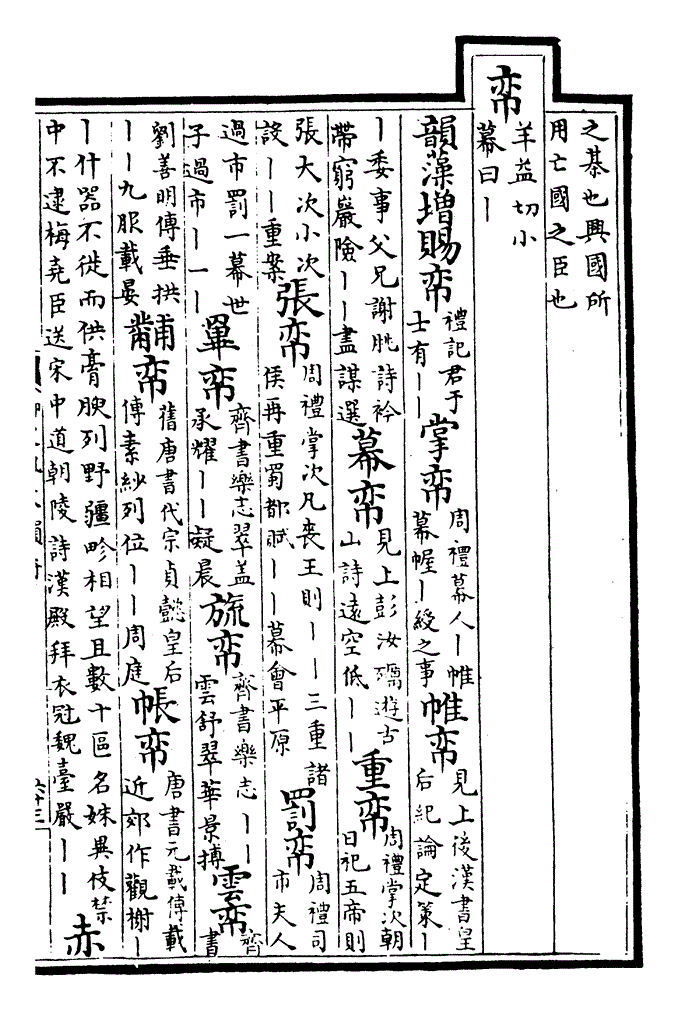 之基也興國所
用亡國之臣也
帟
羊益切小
幕曰丨
韻藻增賜帟
禮記君于
士有丨丨
掌帟
周禮幕人丨帷
幕幄丨綬之事
帷帟
見上後漢書皇
后紀論定策丨
丨委事父兄謝朓詩衿
帶窮巖險丨丨盡謀選
幕帟
見上彭汝礪遊古
山詩遠空低丨丨
重帟
周禮掌次朝
日祀五帝則
張大次小次
設丨丨重案
張帟
周禮掌次凡喪王則丨丨三重諸
侯再重蜀都賦丨丨幕會平原
罰帟
周禮司
市夫人
過市罰一幕世
子過市丨一丨
翬帟
齊書樂志翠蓋
承耀丨丨凝晨
旒帟
齊書樂志丨丨
雲舒翠華景摶
雲帟
齊
書
劉善明傳垂拱
丨丨九服載晏
黼帟
舊唐書代宗貞懿皇后
傳素紗列位丨丨周庭
帳帟
唐書元載傳載
近郊作觀榭丨
丨什器不徙而供膏腴列野疆畛相望且數十區名姝異伎禁
中不逮梅堯臣送宋中道朝陵詩漢殿拜衣冠魏臺嚴丨丨
赤